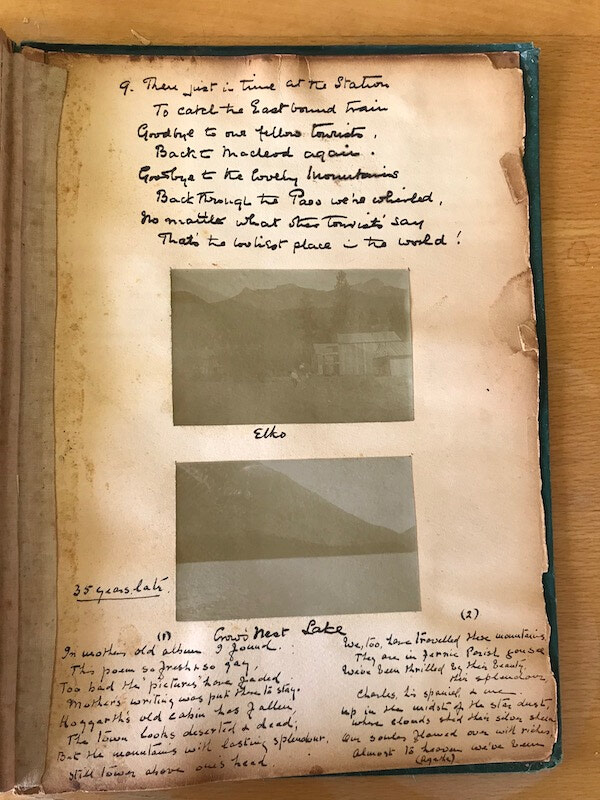 9. There just in time at the Station
To catch the East bound train
Goodbye to our fellow tourists,
Back to Macleod again.
Goodbye to the lovely Mountains
Back through the Pass we're whirled,
No matter what other tourists' say
That's the lovliest place in the world!
Elko
35 years late.
Crow's Nest Lake
(1)
In mothers old album I found.
This poem so fresh & so gay,
Too bad the 'pictures' have faded
Mother's writing was put there to stay.
Hoggarth's old cabin has fallen,
The town looks deserted & dead;
But the mountains with lasting splendour.
Still tower above one's head.
(2)
We, too, have travelled these mountains
They are in Fernie Parish you see
We've been thrilled by their beauty,
this splendour
Charles, his spaniel, & me
up in the midst of the star dust,
where clouds shed their silver sheen
Our souls flowed over with riches,
Almost to heaven we've been
(Agate)